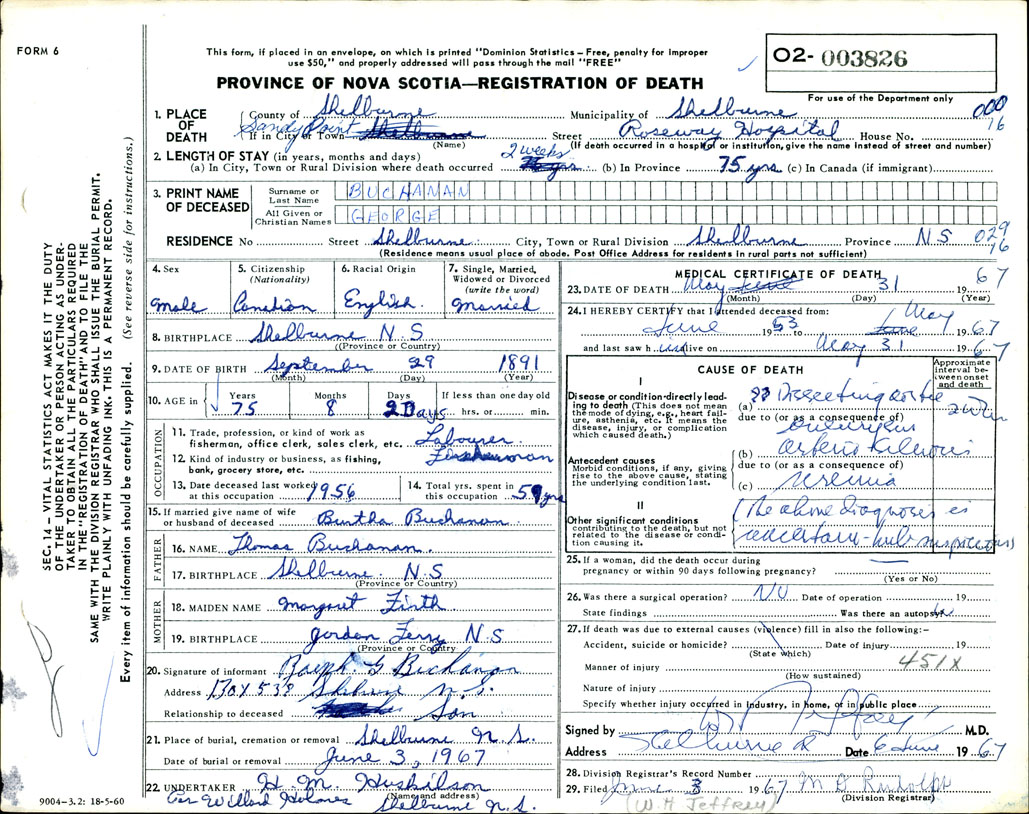 FORM 6
This form, if placed in an envelope, on which is printed "Dominion Statistics – Free, penalty for improper
use $50," and properly addressed will pass through the mail "FREE"
02- 003826
PROVINCE OF NOVA SCOTIA—REGISTRATION OF DEATH
For use of the Department only
000
16
1. PLACE OF DEATH
County of Shelburne Municipality of Shelburne
If in City or Town Sandy Point Shelburne Street Roseway Hospital House No.
(Name) (If death occurred in a hospital or institution, give the name instead of street and number)
2. LENGTH OF STAY (in years, months and days)
(a) In City, Town or Rural Division where death occurred 2 weeks (b) In Province 75 yrs (c) In Canada (if immigrant)
3. PRINT NAME OF DECEASED
Surname or Last Name BUCHANAN
All Given or Christian Names GEORGE
RESIDENCE No. Street Shelburne City, Town or Rural Division Shelburne Province N.S. 029
16
(Residence means usual place of abode. Post Office Address for residents in rural parts not sufficient)
4. Sex
Male
5. Citizenship
(Nationality)
Canadian
6. Racial Origin
English.
7. Single, Married,
Widowed or Divorced
(write the word)
Married
8. BIRTHPLACE Shelburne N.S
(Province or Country)
9. DATE OF BIRTH September 29 1891
(Month) (Day) (Year)
10. AGE in Years Months Days If less than one day
75 8 2 Days hrs. or min.
OCCUPATION
11. Trade, profession, or kind of work as
fisherman, office clerk, sales clerk, etc. Labourer
12. Kind of industry or business, as fishing,
bank, grocery store, etc.
13. Date deceased last worked
at this occupation 1956
14. Total yrs. spent in
this occupation 59 yrs
15. If married give name of wife
or husband of deceased Burtha Buchanan
FATHER
16. NAME Thomas Buchanan
17. BIRTHPLACE Shelburne. N.S
(Province or Country)
MOTHER
18. MAIDEN NAME Margaret Firth
19. BIRTHPLACE Jordan Ferry N.S
(Province or Country)
20. Signature of informant Ralph G Buchanan
Address Box 538 Shelburne N.S.
Relationship to deceased Son
21. Place of burial, cremation or removal Shelburne N.S.
Date of burial or removal June 3, 1967
22. UNDERTAKER H. M. Huskilson
(Name and address)
Per Willard Holmes Shelburne N.S.
9004-3.2: 18-5-60
MEDICAL CERTIFICATE OF DEATH
23. DATE OF DEATH May June 31 1967
(Month) (Day) (Year)
24. I HEREBY CERTIFY that I attended deceased from:
June 1953 May June 1967
and last saw him alive on May 31 1967
CAUSE OF DEATH
Approximate
interval be-
tween onset
and death
I
Disease or condition directly lead-
ing to death (This does not mean
the mode of dying, e.g., heart fail-
ure, asthenia, etc. It means the
disease, injury, or complication
which caused death.)
(a) ?? Dissecting aortic
due to (or as a consequence of)
Antecedent causes
Morbid conditions, if any, giving
rise to the above cause, stating
the underlying condition last.
(b)
due to (or as a consequence of)
(c) Uremia
II
Other significant conditions
contributing to the death, but not
related to the disease or condi-
tion causing it.
(The above diagnoses is
25. If a woman, did the death occur during
pregnancy or within 90 days following pregnancy?
(Yes or No)
26. Was there a surgical operation? No Date of operation 19
State findings Was there an autopsy
27. If death was due to external causes (violence) fill in also the following:–
Accident, suicide or homicide? Date of injury 19
(State which)
Manner of injury 451X
(How sustained)
Nature of injury
Specify whether injury occurred in industry, in home, or in public place
Signed by M.D.
Address Shelburne Date 6 June 1967
28. Division Registrar's Record Number
29. Filed June 3 1967 M D Rudolph
(W.H Jeffrey) (Division Registrar)
SEC. 14 – VITAL STATISTICS ACT MAKES IT THE DUTY
OF THE UNDERTAKER OR PERSON ACTING AS UNDER-
TAKER TO OBTAIN ALL THE PARTICULARS REQUIRED
IN THE "REGISTRATION OF DEATH" AND TO FILE THE
SAME WITH THE DIVISION REGISTRAR WHO SHALL ISSUE THE BURIAL PERMIT.
WRITE PLAINLY WITH UNFADING INK. THIS IS A PERMANENT RECORD.
Every item of information should be carefully supplied. (See reverse side for instructions.)